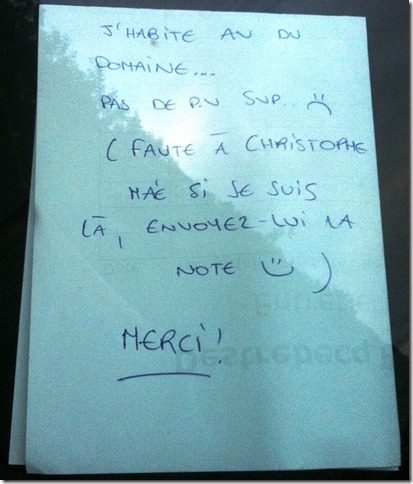 J'HABITE AU DU
DOMAINE...
PAS DE P.V SVP.. :(
( FAUTE À CHRISTOPHE
MAÉ SI JE SUIS
LÀ, ENVOYEZ-LUI LA
NOTE :) )
MERCI!